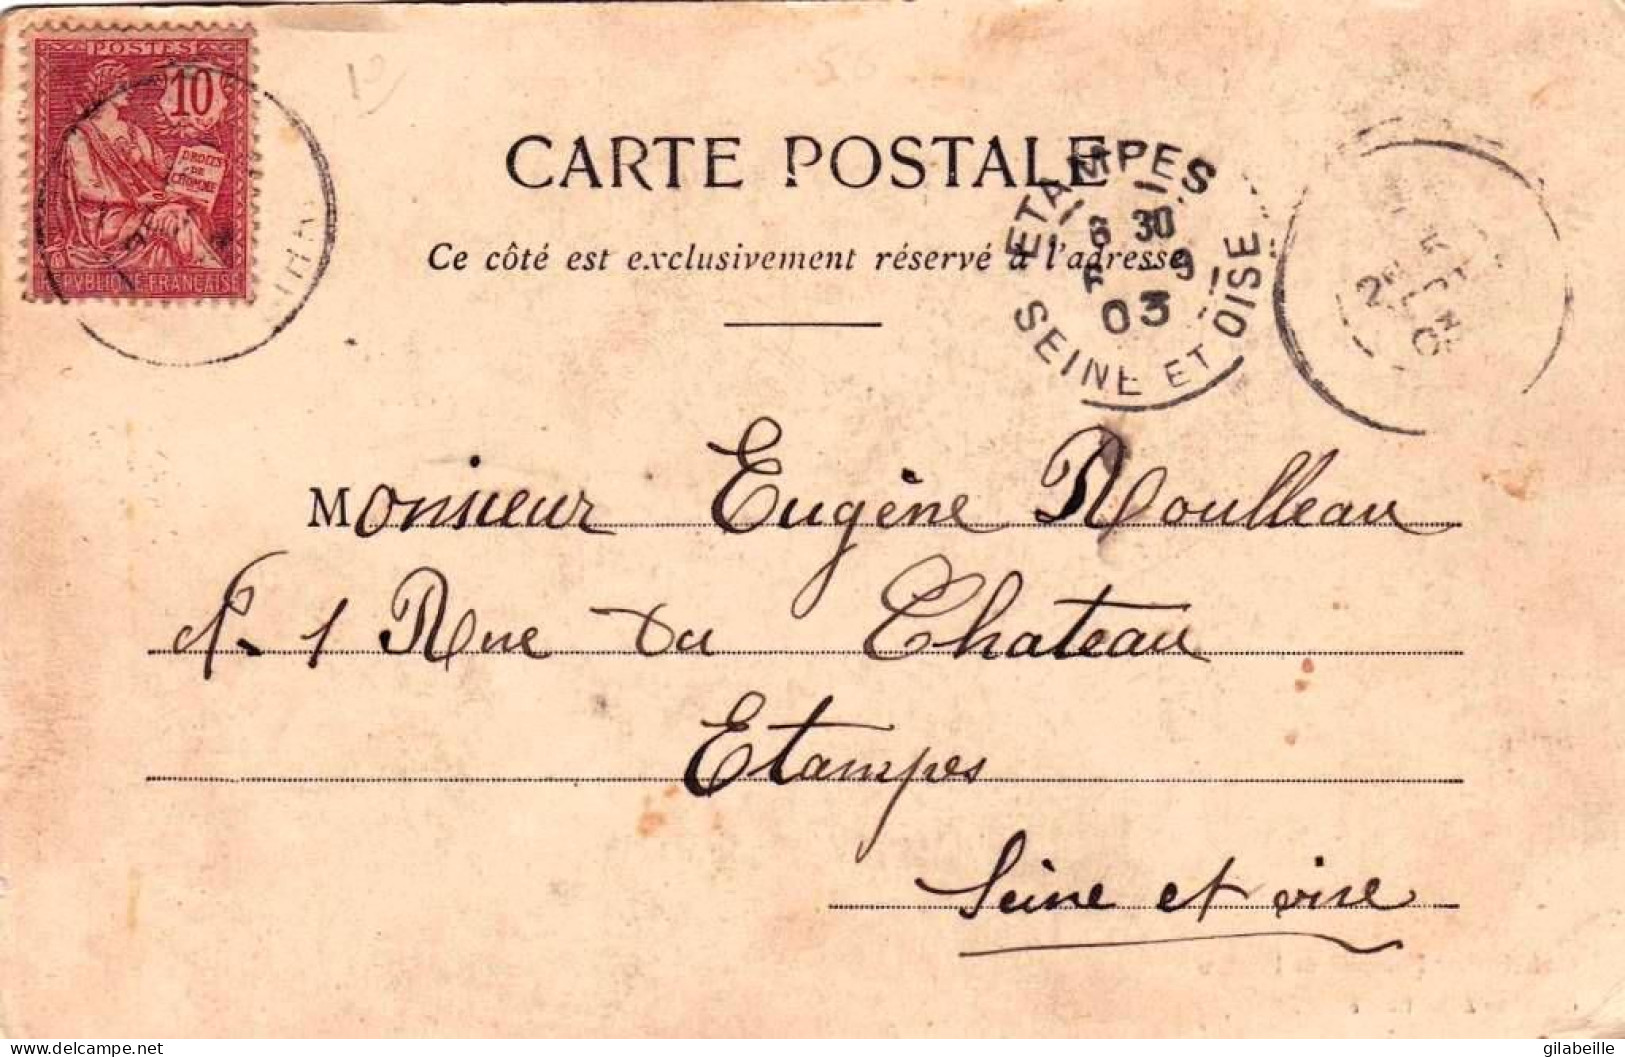 POSTES
10
DROITS
DE
L'HOMME
REPVBLIQUE FRANÇAISE
CARTE POSTALE
Ce côté est exclusivement réservé à l'adresse
ETAMPES
6 30
6 -9
03
SEINE ET OISE
Monsieur Eugène Roulleau
N. 1 Rue Du Chateau
Etampes
Seine et oise
gilabeille